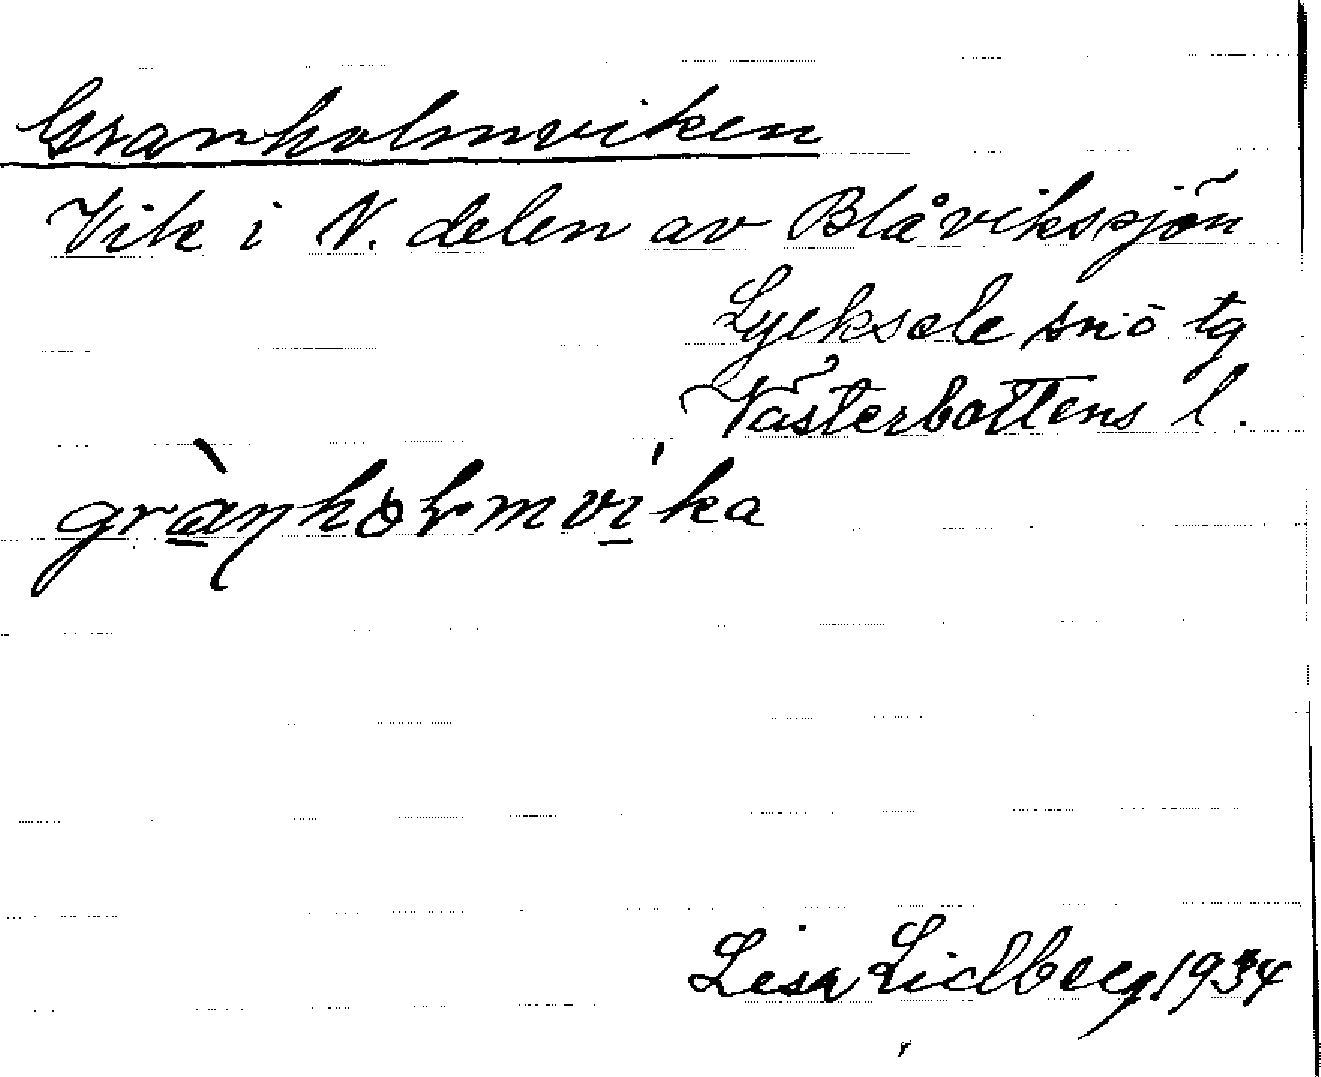 Granholmviken
Vik i N. delen av Blåviksjön
Lycksele snö tg
Västerbottens l.
Lisa Lidberg 1934